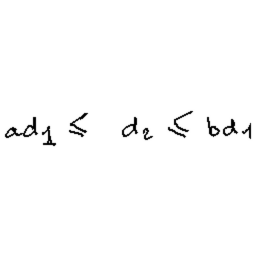 ad₁ ≤ d₂ ≤ bd₁